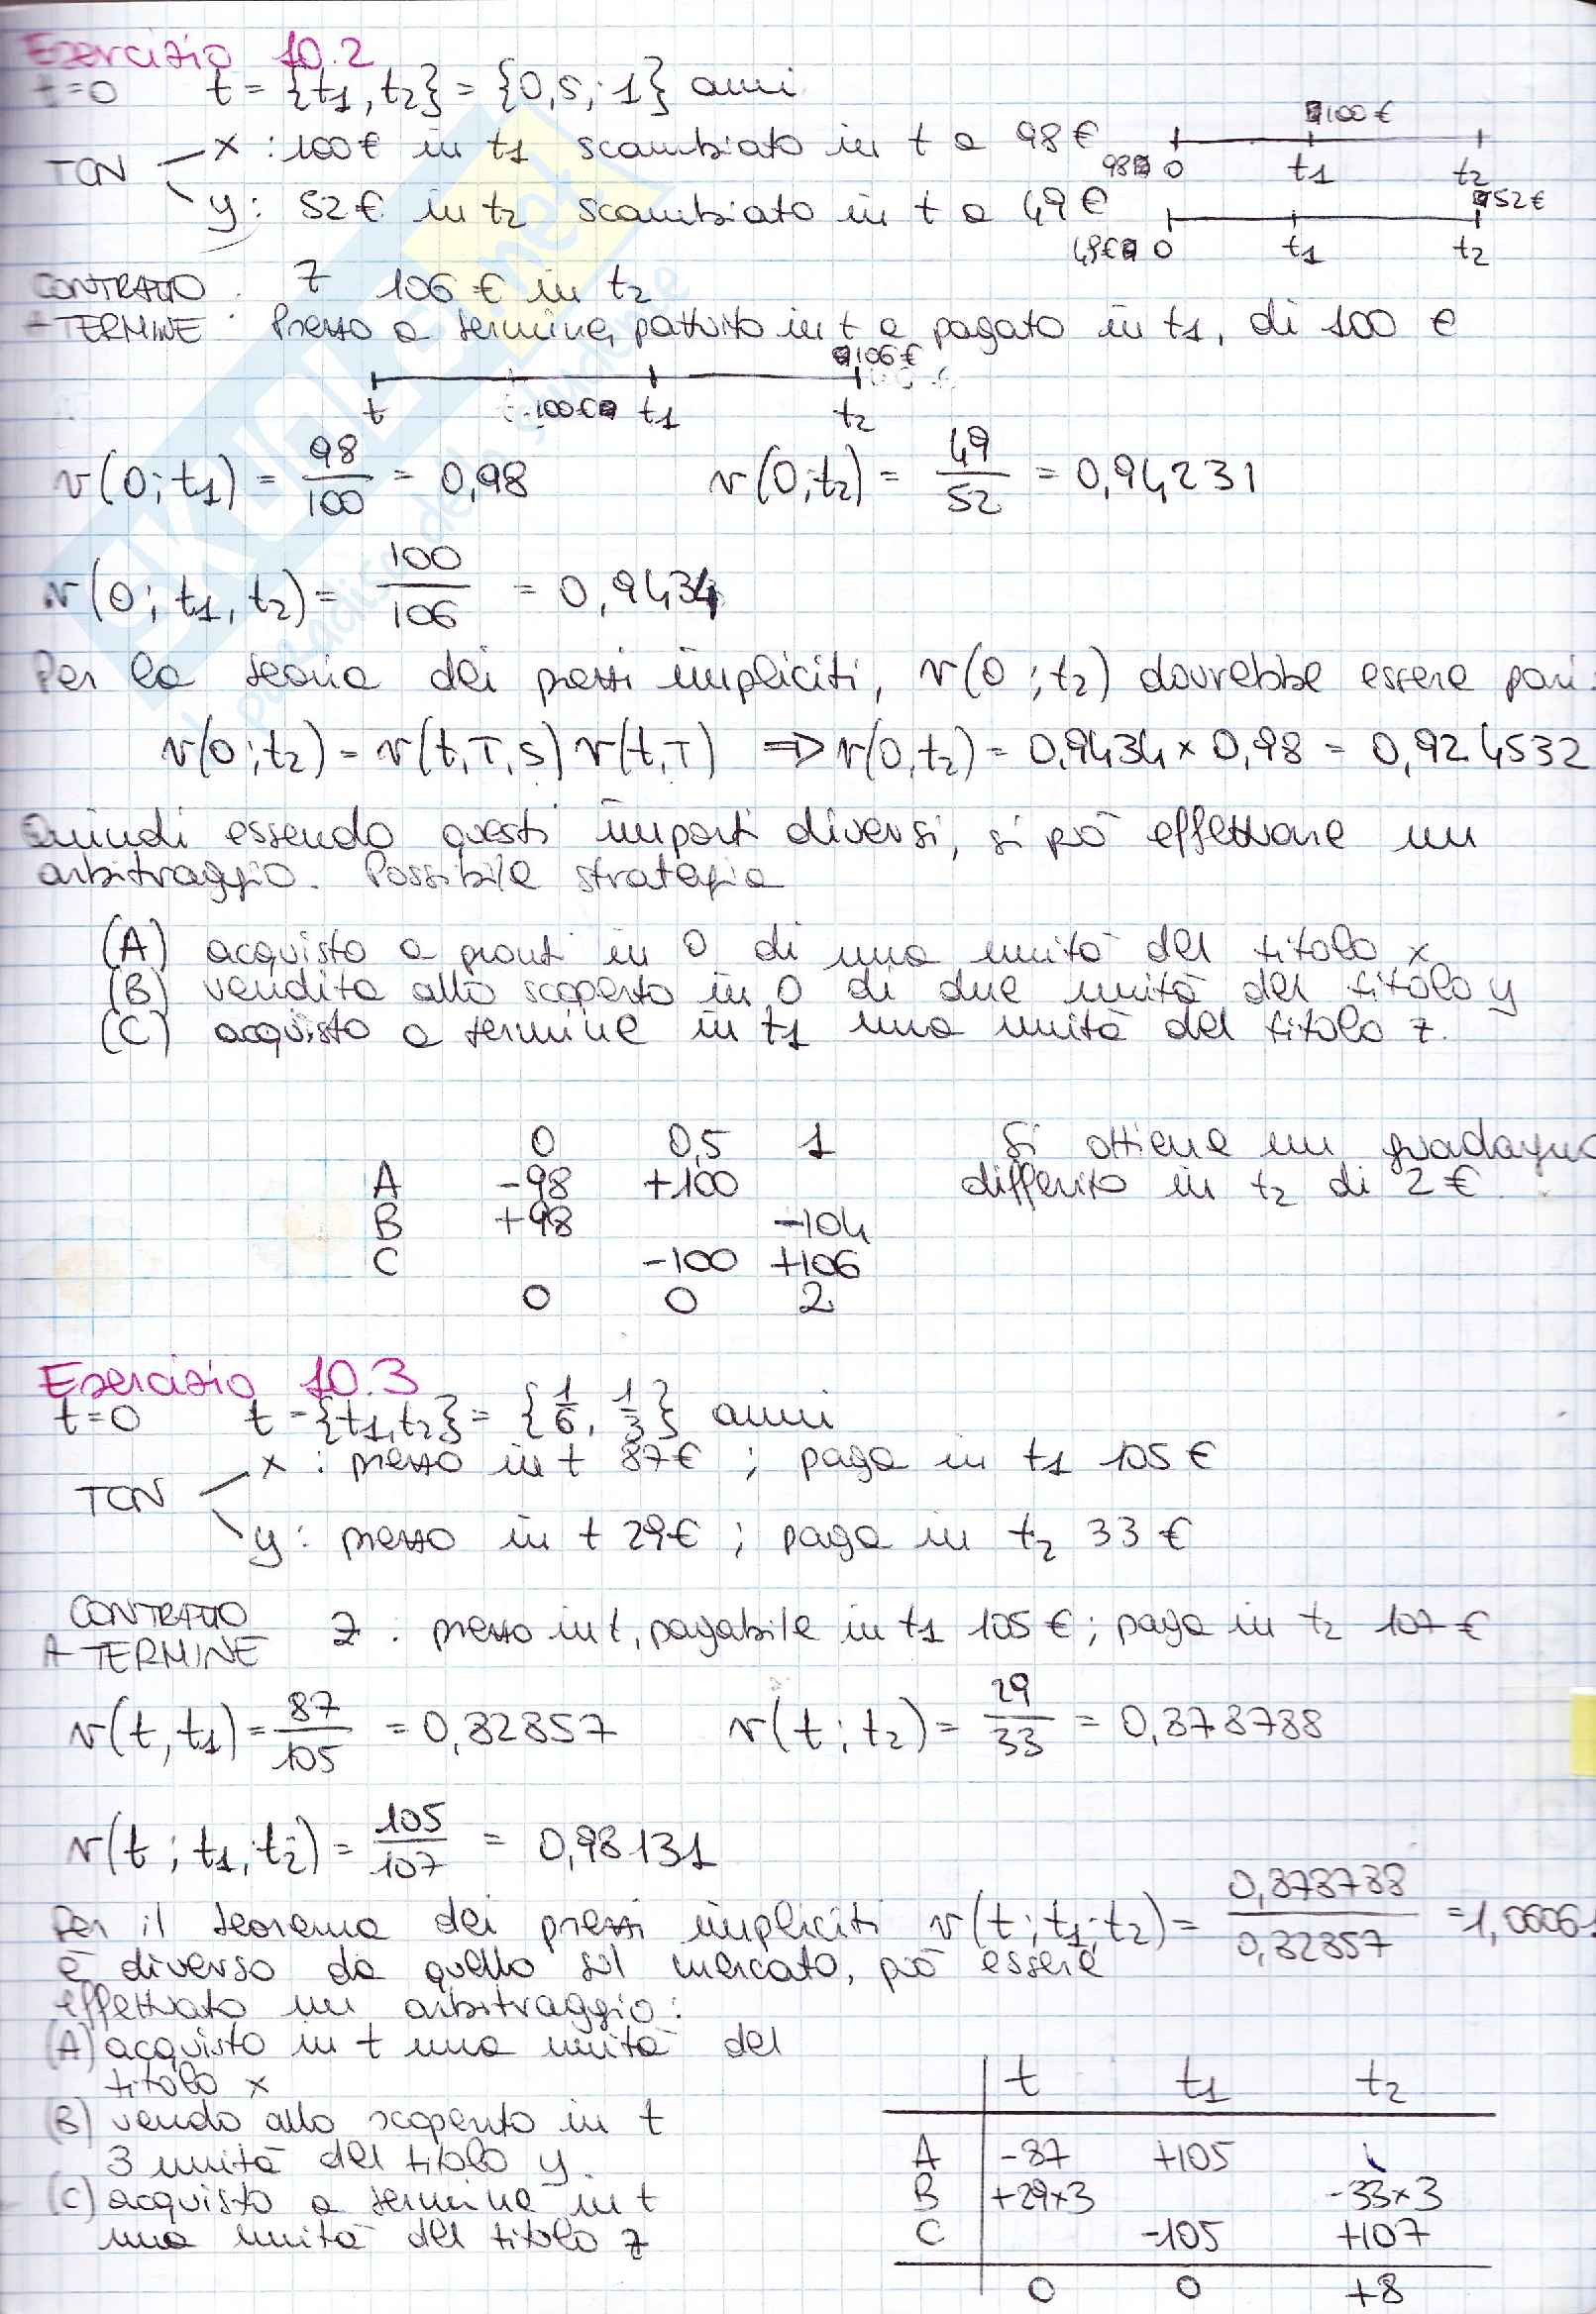 Esercizio 10.2
t=0 t = {t1, t2} = {0,5 ; 1} anni
TCN x : 100€ in t1 scambiato in t a 98€
100€
98 0 t1 t2
y : 52€ in t2 scambiato in t a 49€
52€
49€ 0 t1 t2
CONTRATTO : z 106 € in t2
A TERMINE : Prezzo a termine, pattuito in t e pagato in t1, di 100 €
106€
t 100€ t1 t2
v(0; t1) = 98/100 = 0,98 v(0; t2) = 49/52 = 0,94231
v(0; t1, t2) = 100/106 = 0,9434
Per la teoria dei prezzi impliciti, v(0 ; t2) dovrebbe essere pari:
v(0; t2) = v(t,T,s) v(t,T) => v(0,t2) = 0,9434 x 0,98 = 0,924532
Quindi essendo questi importi diversi, si può effettuare un
arbitraggio. Possibile strategia
(A) acquisto a pronti in 0 di una unità del titolo x
(B) vendita allo scoperto in 0 di due unità del titolo y
(C) acquisto a termine in t1 una unità del titolo z.
0 0,5 1 Si ottiene un guadagno
A -98 +100 differito in t2 di 2€.
B +98 -104
C -100 +106
0 0 2
Esercizio 10.3
t=0 t = {t1, t2} = {1/6, 1/3} anni
TCN x : prezzo in t 87€ ; paga in t1 105 €
y : prezzo in t 29€ ; paga in t2 33 €
CONTRATTO
A TERMINE z : prezzo in t, pagabile in t1 105 € ; paga in t2 107 €
v(t, t1) = 87/105 = 0,82857 v(t ; t2) = 29/33 = 0,878788
v(t ; t1, t2) = 105/107 = 0,98131
Per il teorema dei prezzi impliciti v(t ; t1; t2) = 0,878788/0,82857 = 1,06061
è diverso da quello sul mercato, può essere
effettuato un arbitraggio :
(A) acquisto in t una unità del
titolo x
(B) vendo allo scoperto in t
3 unità del titolo y.
(C) acquisto a termine in t
una unità del titolo z
t t1 t2
A -87 +105
B +29x3 -33x3
C -105 +107
0 0 +8